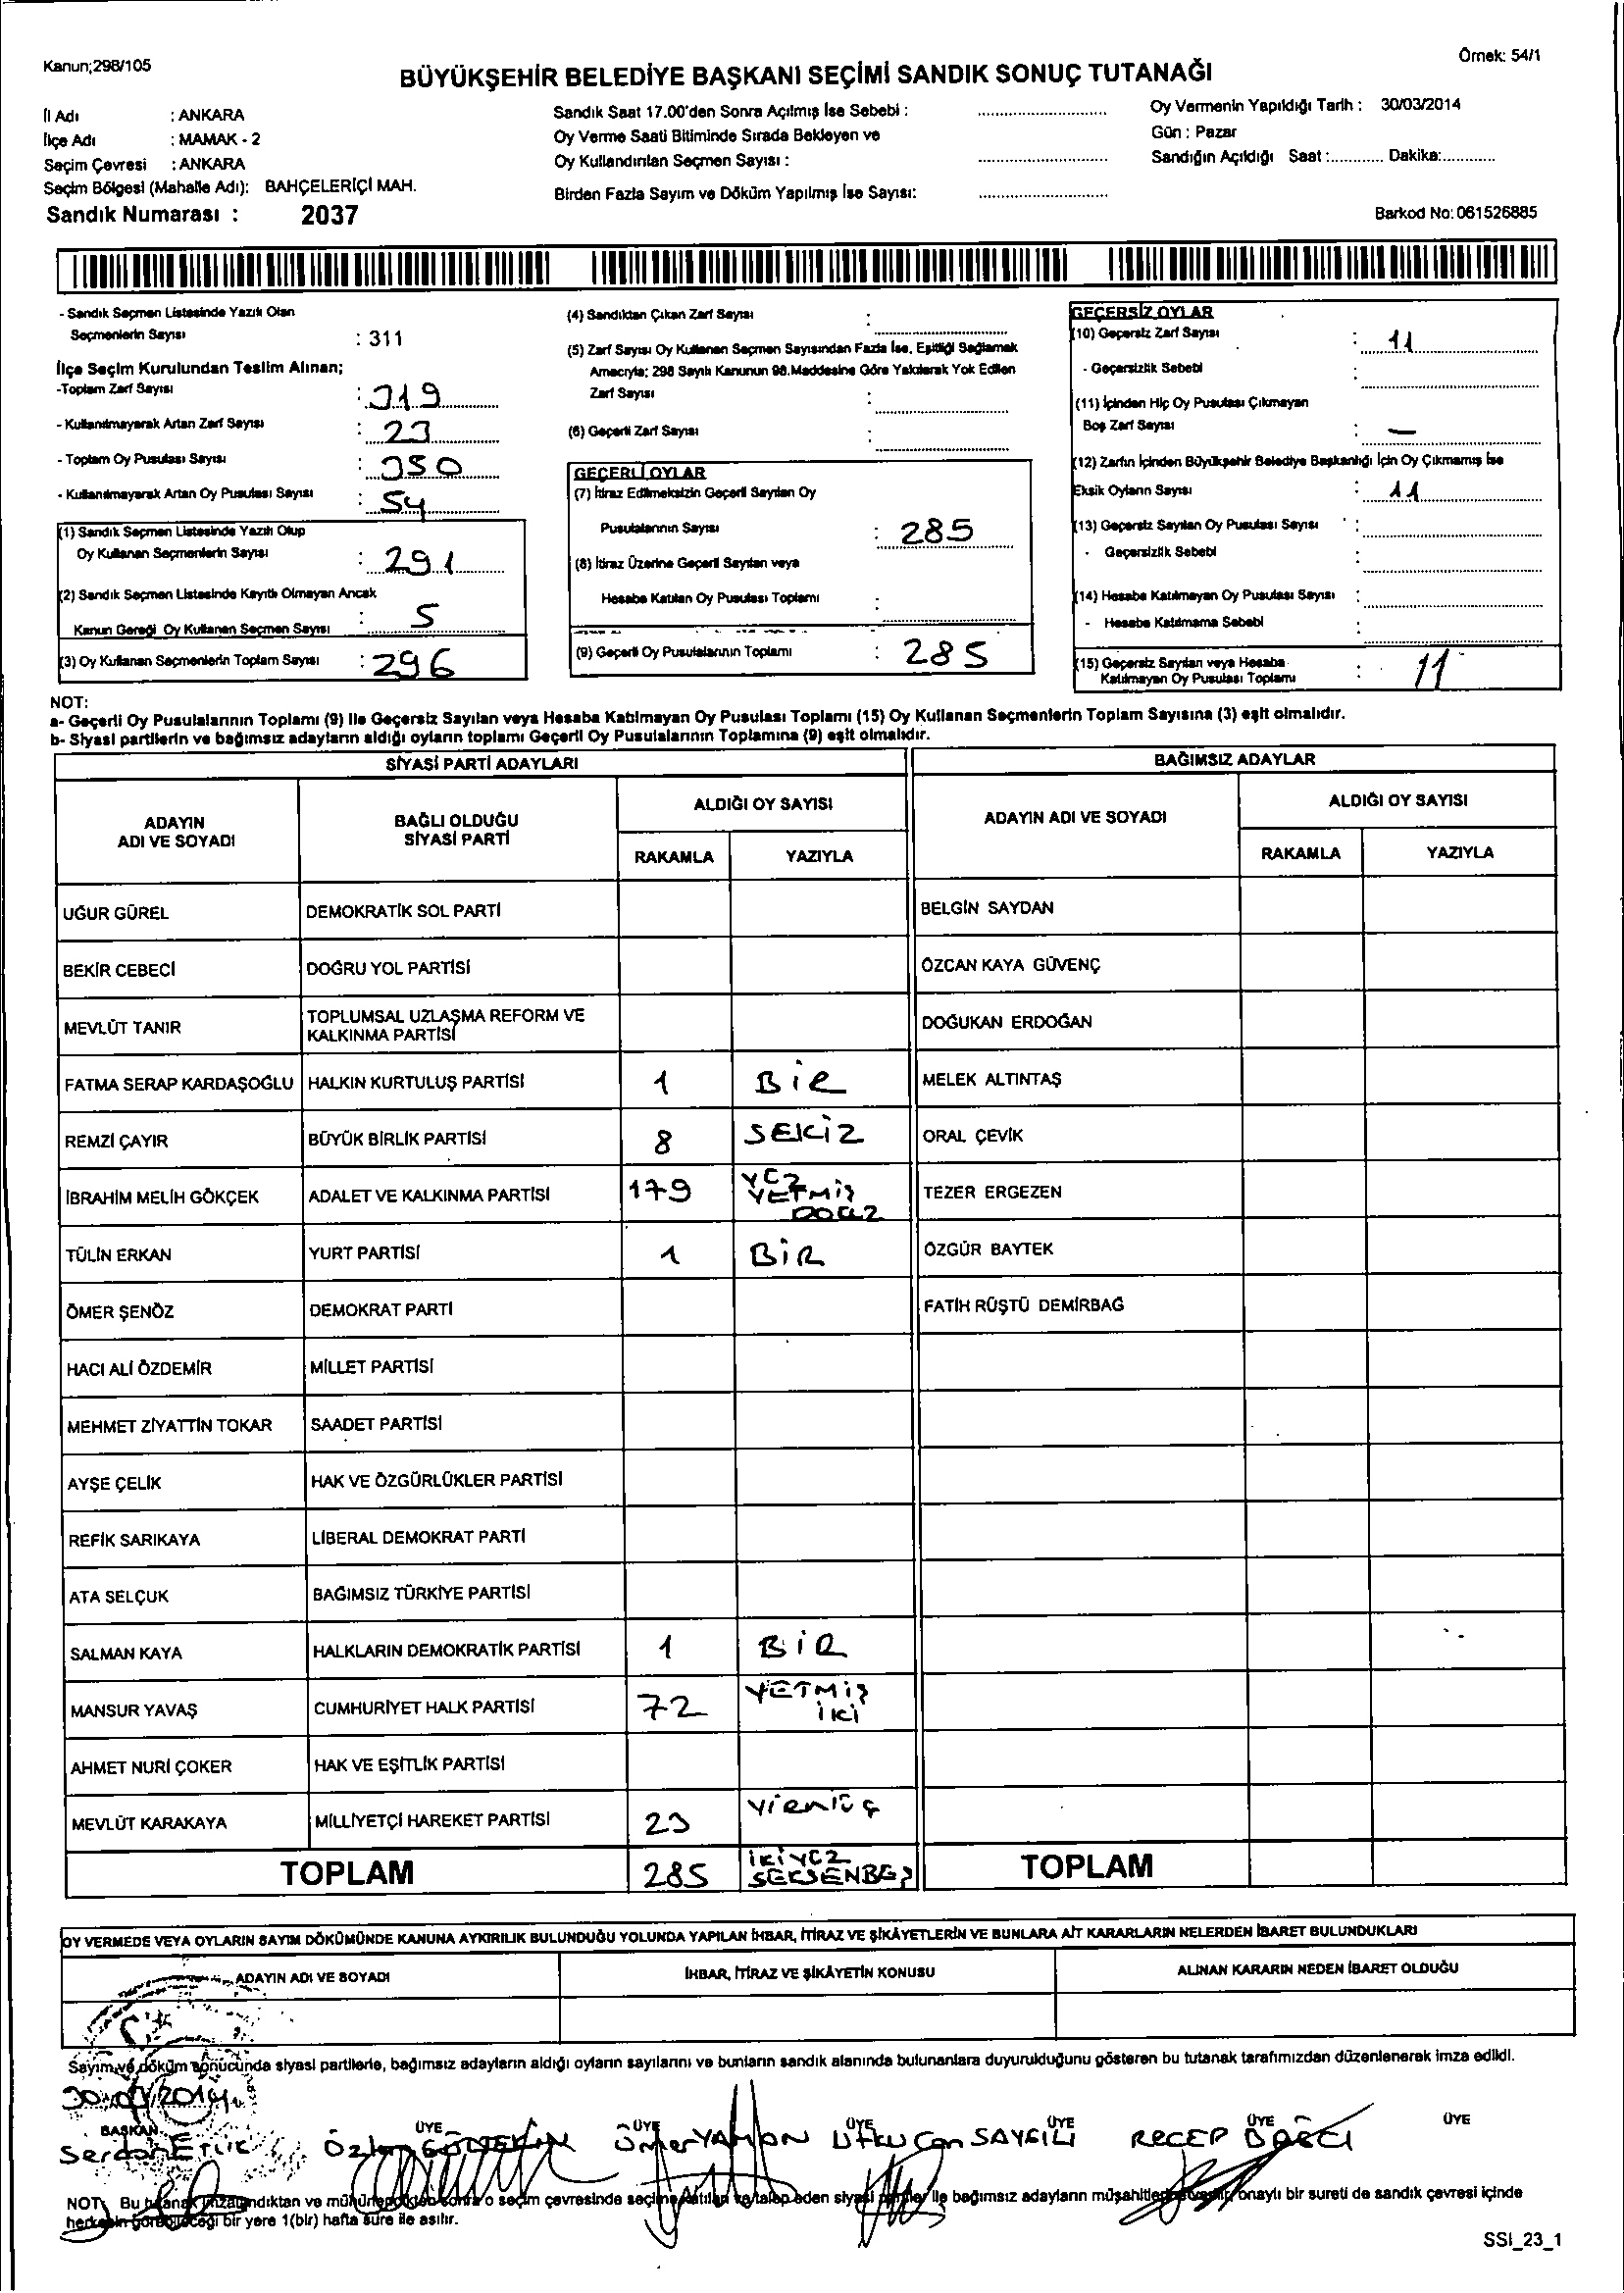 Kanun;298/105
Örnek: 54/1
BÜYÜKŞEHİR BELEDİYE BAŞKANI SEÇİMİ SANDIK SONUÇ TUTANAĞI
İl Adı : ANKARA
İlçe Adı : MAMAK - 2
Seçim Çevresi : ANKARA
Seçim Bölgesi (Mahalle Adı): BAHÇELERİÇİ MAH.
Sandık Numarası : 2037
Sandık Saat 17.00'den Sonra Açılmış İse Sebebi :
Oy Verme Saati Bitiminde Sırada Bekleyen ve
Oy Kullandırılan Seçmen Sayısı :
Birden Fazla Sayım ve Döküm Yapılmış İse Sayısı:
Oy Vermenin Yapıldığı Tarih : 30/03/2014
Gün : Pazar
Sandığın Açıldığı Saat :............ Dakika:............
Barkod No: 061526885
- Sandık Seçmen Listesinde Yazılı Olan
Seçmenlerin Sayısı : 311
İlçe Seçim Kurulundan Teslim Alınan;
-Toplam Zarf Sayısı : 319
- Kullanılmayarak Artan Zarf Sayısı : 23
- Toplam Oy Pusulası Sayısı : 350
- Kullanılmayarak Artan Oy Pusulası Sayısı : 54
(1) Sandık Seçmen Listesinde Yazılı Olup
Oy Kullanan Seçmenlerin Sayısı : 291
(2) Sandık Seçmen Listesinde Kayıtlı Olmayan Ancak
Kanun Gereği Oy Kullanan Seçmen Sayısı : 5
(3) Oy Kullanan Seçmenlerin Toplam Sayısı : 296
(4) Sandıktan Çıkan Zarf Sayısı :
(5) Zarf Sayısı Oy Kullanan Seçmen Sayısından Fazla İse, Eşitliği Sağlamak
Amacıyla; 298 Sayılı Kanunun 98.Maddesine Göre Yakılarak Yok Edilen
Zarf Sayısı :
(6) Geçerli Zarf Sayısı :
GEÇERLİ OYLAR
(7) İtiraz Edilmeksizin Geçerli Sayılan Oy
Pusulalarının Sayısı : 285
(8) İtiraz Üzerine Geçerli Sayılan veya
Hesaba Katılan Oy Pusulası Toplamı :
(9) Geçerli Oy Pusulalarının Toplamı : 285
GEÇERSİZ OYLAR
(10) Geçersiz Zarf Sayısı : 11
- Geçersizlik Sebebi :
(11) İçinden Hiç Oy Pusulası Çıkmayan
Boş Zarf Sayısı : —
(12) Zarfın İçinden Büyükşehir Belediye Başkanlığı İçin Oy Çıkmamış İse
Eksik Oyların Sayısı : 11
(13) Geçersiz Sayılan Oy Pusulası Sayısı :
- Geçersizlik Sebebi :
(14) Hesaba Katılmayan Oy Pusulası Sayısı :
- Hesaba Katılmama Sebebi :
(15) Geçersiz Sayılan veya Hesaba
Katılmayan Oy Pusulası Toplamı : 11
NOT:
a- Geçerli Oy Pusulalarının Toplamı (9) ile Geçersiz Sayılan veya Hesaba Katılmayan Oy Pusulası Toplamı (15) Oy Kullanan Seçmenlerin Toplam Sayısına (3) eşit olmalıdır.
b- Siyasi partilerin ve bağımsız adayların aldığı oyların toplamı Geçerli Oy Pusulalarının Toplamına (9) eşit olmalıdır.
SİYASİ PARTİ ADAYLARI BAĞIMSIZ ADAYLAR
ADAYIN ADI VE SOYADI BAĞLI OLDUĞU SİYASİ PARTİ ALDIĞI OY SAYISI ADAYIN ADI VE SOYADI ALDIĞI OY SAYISI
RAKAMLA YAZIYLA RAKAMLA YAZIYLA
UĞUR GÜREL DEMOKRATİK SOL PARTİ BELGİN SAYDAN
BEKİR CEBECİ DOĞRU YOL PARTİSİ ÖZCAN KAYA GÜVENÇ
MEVLÜT TANIR TOPLUMSAL UZLAŞMA REFORM VE KALKINMA PARTİSİ DOĞUKAN ERDOĞAN
FATMA SERAP KARDAŞOĞLU HALKIN KURTULUŞ PARTİSİ 1 BİR MELEK ALTINTAŞ
REMZİ ÇAYIR BÜYÜK BİRLİK PARTİSİ 8 SEKİZ ORAL ÇEVİK
İBRAHİM MELİH GÖKÇEK ADALET VE KALKINMA PARTİSİ 179 YÜZ YETMİŞ DOKUZ TEZER ERGEZEN
TÜLİN ERKAN YURT PARTİSİ 1 BİR ÖZGÜR BAYTEK
ÖMER ŞENÖZ DEMOKRAT PARTİ FATİH RÜŞTÜ DEMİRBAĞ
HACI ALİ ÖZDEMİR MİLLET PARTİSİ
MEHMET ZİYATTİN TOKAR SAADET PARTİSİ
AYŞE ÇELİK HAK VE ÖZGÜRLÜKLER PARTİSİ
REFİK SARIKAYA LİBERAL DEMOKRAT PARTİ
ATA SELÇUK BAĞIMSIZ TÜRKİYE PARTİSİ
SALMAN KAYA HALKLARIN DEMOKRATİK PARTİSİ 1 BİR
MANSUR YAVAŞ CUMHURİYET HALK PARTİSİ 72 YETMİŞ İKİ
AHMET NURİ ÇOKER HAK VE EŞİTLİK PARTİSİ
MEVLÜT KARAKAYA MİLLİYETÇİ HAREKET PARTİSİ 23 Yirmiüç
TOPLAM 285 İKİYÜZ SEKSENBEŞ TOPLAM
OY VERMEDE VEYA OYLARIN SAYIM DÖKÜMÜNDE KANUNA AYKIRILIK BULUNDUĞU YOLUNDA YAPILAN İHBAR, İTİRAZ VE ŞİKÂYETLERİN VE BUNLARA AİT KARARLARIN NELERDEN İBARET BULUNDUKLARI
ADAYIN ADI VE SOYADI İHBAR, İTİRAZ VE ŞİKÂYETİN KONUSU ALINAN KARARIN NEDEN İBARET OLDUĞU
Sayım ve döküm sonucunda siyasi partilerle, bağımsız adayların aldığı oyların sayılarını ve bunların sandık alanında bulunanlara duyurulduğunu gösteren bu tutanak tarafımızdan düzenlenerek imza edildi.
30/03/2014
BAŞKAN ÜYE ÜYE ÜYE ÜYE ÜYE ÜYE
Serdar Ömer YAMAN Utku Can SAYGILI RECEP
NOT: Bu tutanak imzalandıktan ve mühürlendikten sonra o seçim çevresinde seçime katılan ve talep eden siyasi partiler ile bağımsız adayların müşahitlerine onaylı bir sureti de sandık çevresi içinde
herkesin görebileceği bir yere 1(bir) hafta süre ile asılır.
SSI_23_1